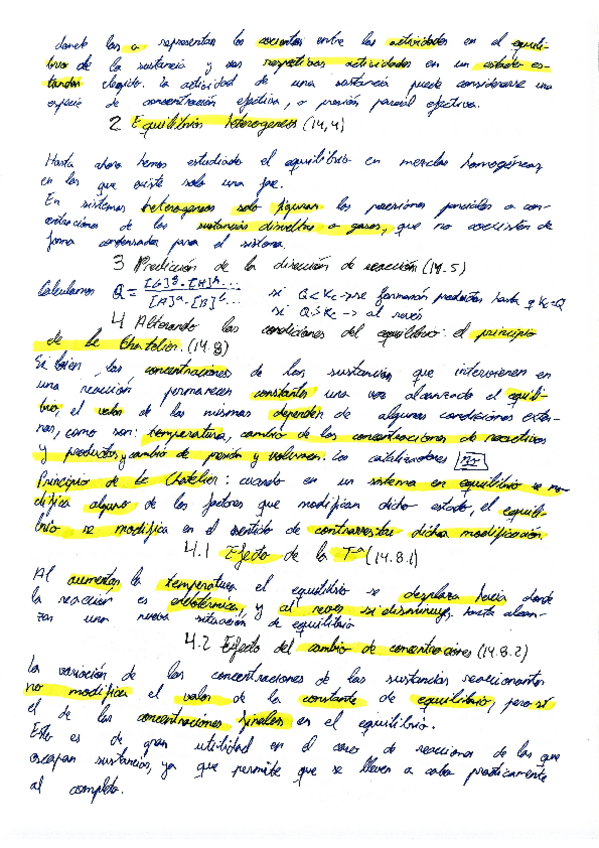 donde las a representan los cocientes entre las actividades en el equili-
brio de la sustancia y sus respectivas actividades en un estado es-
tandar elegido. La actividad de una sustancia puede considerarse una
especie de concentración efectiva, o presión parcial efectiva.
2 Equilibrios heterogeneos (14.4)
Hasta ahora hemos estudiado el equilibrio en mezclas homogéneas,
en las que existe solo una fase.
En sistemas heterogeneos solo figuran las presiones parciales o con-
centraciones de las sustancias disueltas o gases, que no coexisten de
forma condensada para el sistema.
3 Predicción de la dirección de reacción (14.5)
Calculamos Q = [G]^g·[H]^h... / [A]^a·[B]^b... si Q<Kc -> se formarán productos hasta q Kc=Q
si Q>Kc -> al revés
4 Alterando las condiciones del equilibrio: el principio
de Le Chatelier. (14.8)
Si bien, las concentraciones de las sustancias que intervienen en
una reacción permanecen constantes una vez alcanzado el equili-
brio, el valor de las mismas dependen de algunas condiciones exter-
nas, como son: temperatura, cambio de las concentraciones de reactivos
y productos y cambio de presión y volumen. Los catalizadores no
Principio de Le Chatelier: cuando en un sistema en equilibrio se mo-
difica alguno de los factores que modifican dicho estado, el equili-
brio se modifica en el sentido de contrarrestar dicha modificación.
4.1 Efecto de la Tª (14.8.1)
Al aumentar la temperatura el equilibrio se desplaza hacia donde
la reacción es endotérmica, y al reves si disminuye, hasta alcan-
zar una nueva situación de equilibrio
4.2 Efecto del cambio de concentraciones (14.8.2)
La variación de las concentraciones de las sustancias reaccionantes
no modifica el valor de la constante de equilibrio, pero sí
el de las concentraciones finales en el equilibrio.
Esto es de gran utilidad en el caso de reacciones de las que
escapan sustancias, ya que permite que se lleven a cabo practicamente
al completo.